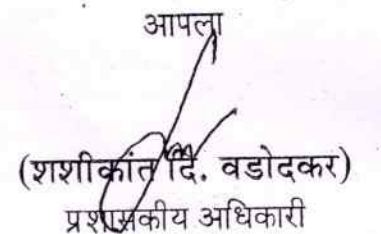 आपला
(शशीकांत दि. वडोदकर)
प्रशासकीय अधिकारी